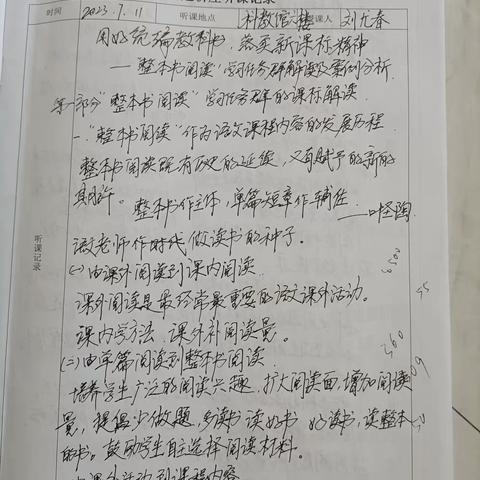 时间 2023.7.11 听课地点 科教馆六楼 授课人 刘尤春
用好统编教科书，落实新课标精神
——"整本书阅读"学习任务群解读及案例分析
第一部分 "整本书阅读"学习任务群的课标解读
一."整本书阅读"作为语文课程内容的发展历程.
整本书阅读既有历史的延续，又有赋予的新的
期许.
整本书作主体，单篇短章作辅佐.
——叶圣陶.
语文老师作时代做读书的种子.
听课记录
(一)由课外阅读到课内阅读.
课外阅读是最经常最重要的语文课外活动。
课内学方法，课外补阅读量。
(二)由单篇阅读到整本书阅读
培养学生广泛的阅读兴趣，扩大阅读面，增加阅读
量，提倡少做题，多读书 读好书 好读书，读整本
的书。鼓励学生自主选择阅读材料.
课外活动到课程内容